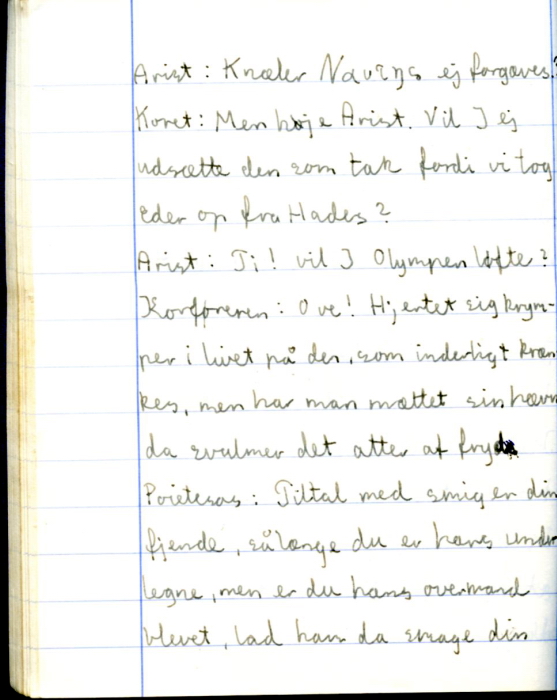 Arist: Knæler Navens ej forgæves?
Koret: Men høje Arist. Vil I ej
udsætte den som tak fordi vi tog
eder op fra Hades?
Arist: Ti! vil I Olympen løfte?
Korføreren: O ve! Hjertet sig krym-
per i livet på den, som inderligt kræn
kes, men har man mættet sin hævn
da svulmer det atter af fryd
Poietesas: Tiltal med smig er din
fjende, sålænge du er hans under
legne, men er du hans overmand
blevet, lad ham da smage din